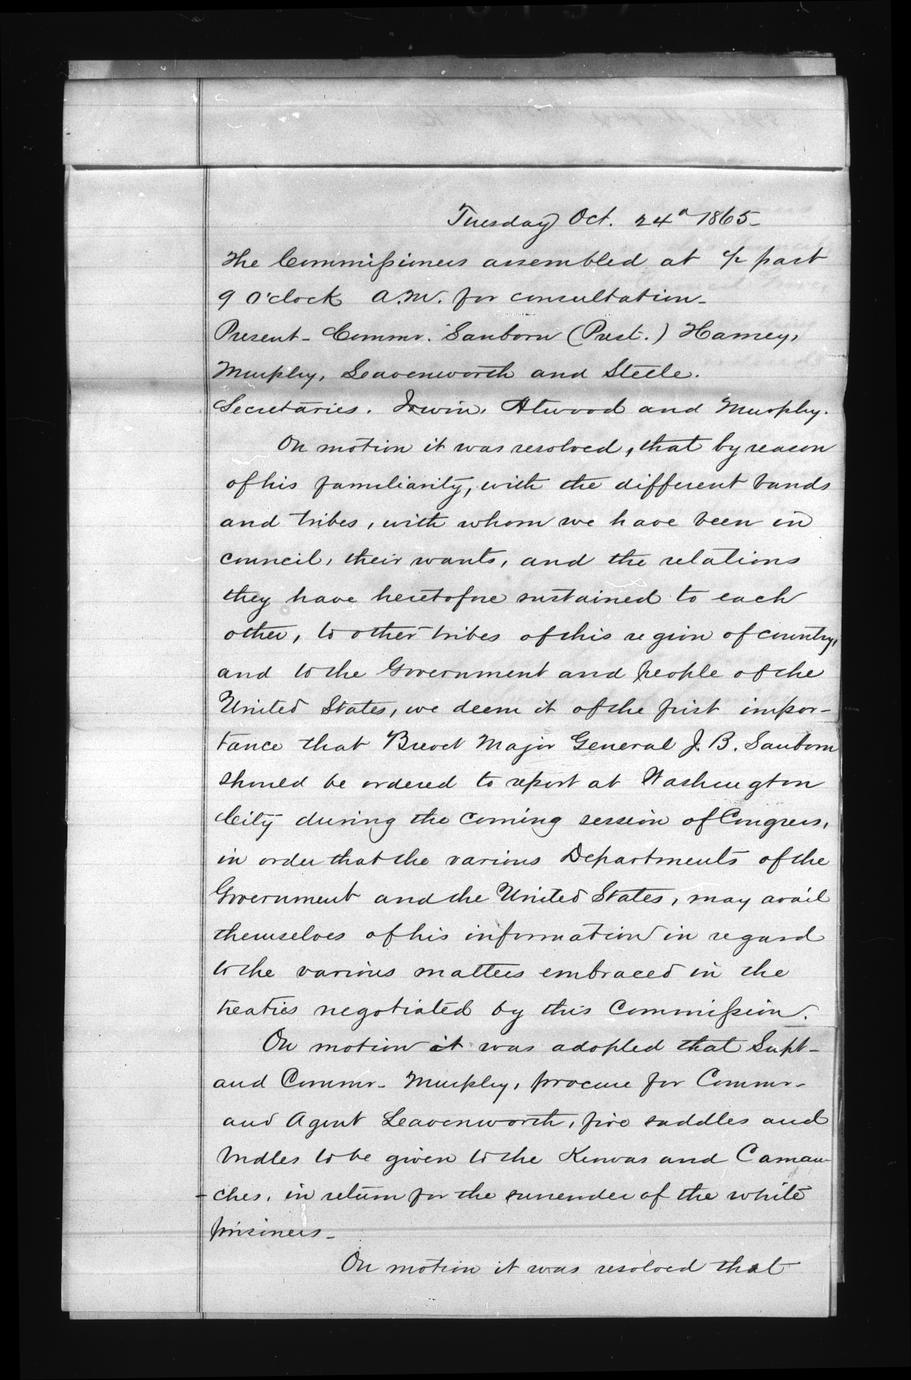 Tuesday Oct. 24th 1865-
The Commissioners assembled at ½ past
9 O'clock A.M. for consultation-
Present- Commr. Sanborn (Prest.) Harney,
Murphy, Leavenworth and Steele.
Secretaries. Irwin, Atwood and Murphy.
On motion it was resolved, that by reason
of his familiarity, with the different bands
and tribes, with whom we have been in
council, their wants, and the relations
they have heretofore sustained to each
other, to other tribes of this region of country,
and to the Government and people of the
United States, we deem it of the first impor-
tance that Brevet Major General J. B. Sanborn
should be ordered to report at Washington
City during the coming session of Congress,
in order that the various Departments of the
Government and the United States, may avail
themselves of his information in regard
to the various matters embraced in the
treaties negotiated by this Commission.
On motion it was adopted that Supt-
and Commr- Murphy, procure for Commr-
and Agent Leavenworth, five saddles and
bridles to be given to the Kiowas and Caman-
-ches, in return for the surrender of the white
prisiners-
On motion it was resolved that